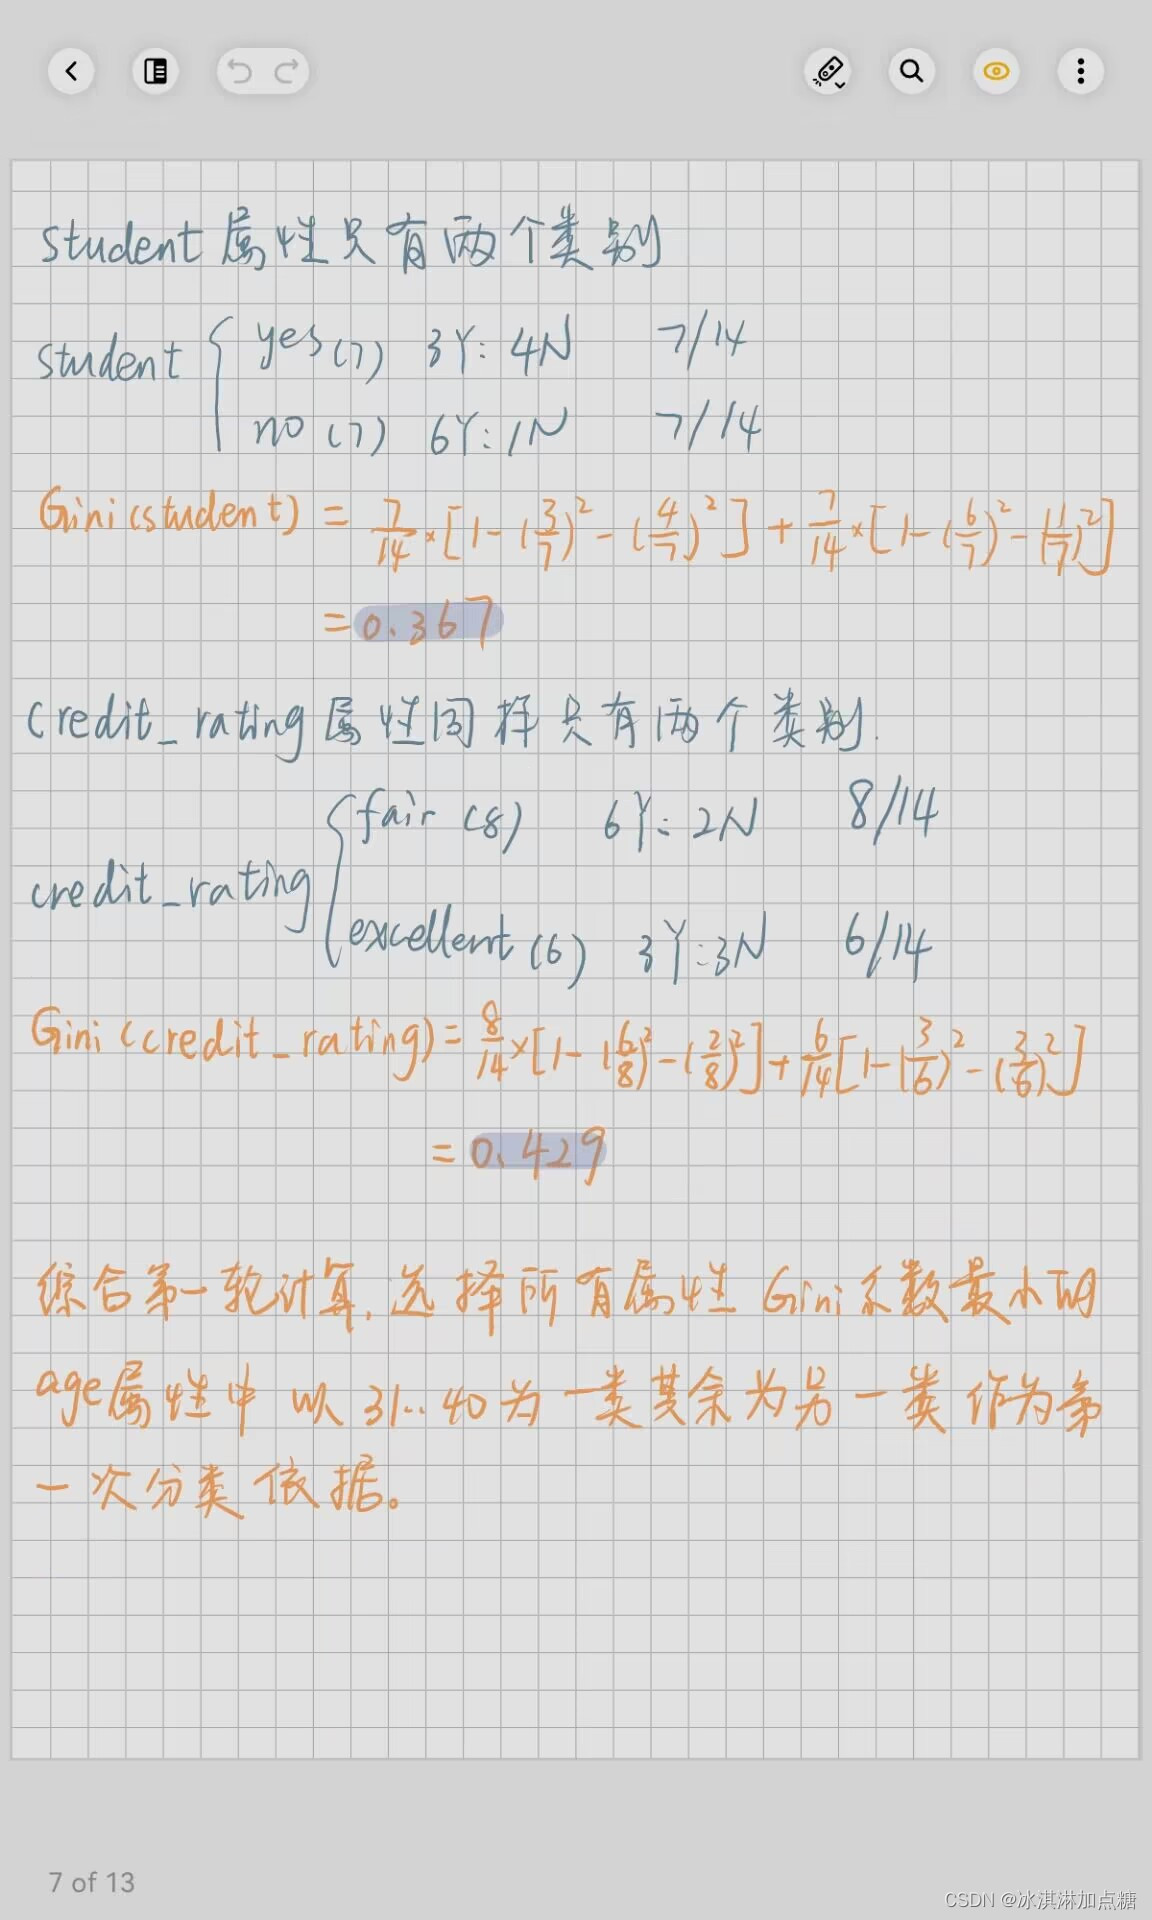 student 属性只有两个类别
student { yes (7) 3Y:4N 7/14
no (7) 6Y:1N 7/14
Gini(student) = 7/14 × [1-(3/7)²-(4/7)²] + 7/14 × [1-(6/7)²-(1/7)²]
= 0.367
credit_rating 属性同样只有两个类别.
credit_rating { fair (8) 6Y:2N 8/14
excellent (6) 3Y:3N 6/14
Gini(credit_rating) = 8/14 × [1-(6/8)²-(2/8)²] + 6/14 [1-(3/6)²-(3/6)²]
= 0.429
综合第一轮计算,选择所有属性 Gini系数最小的
age属性中 以 31..40为一类其余为另一类 作为第
一次分类依据。
7 of 13
CSDN @冰淇淋加点糖